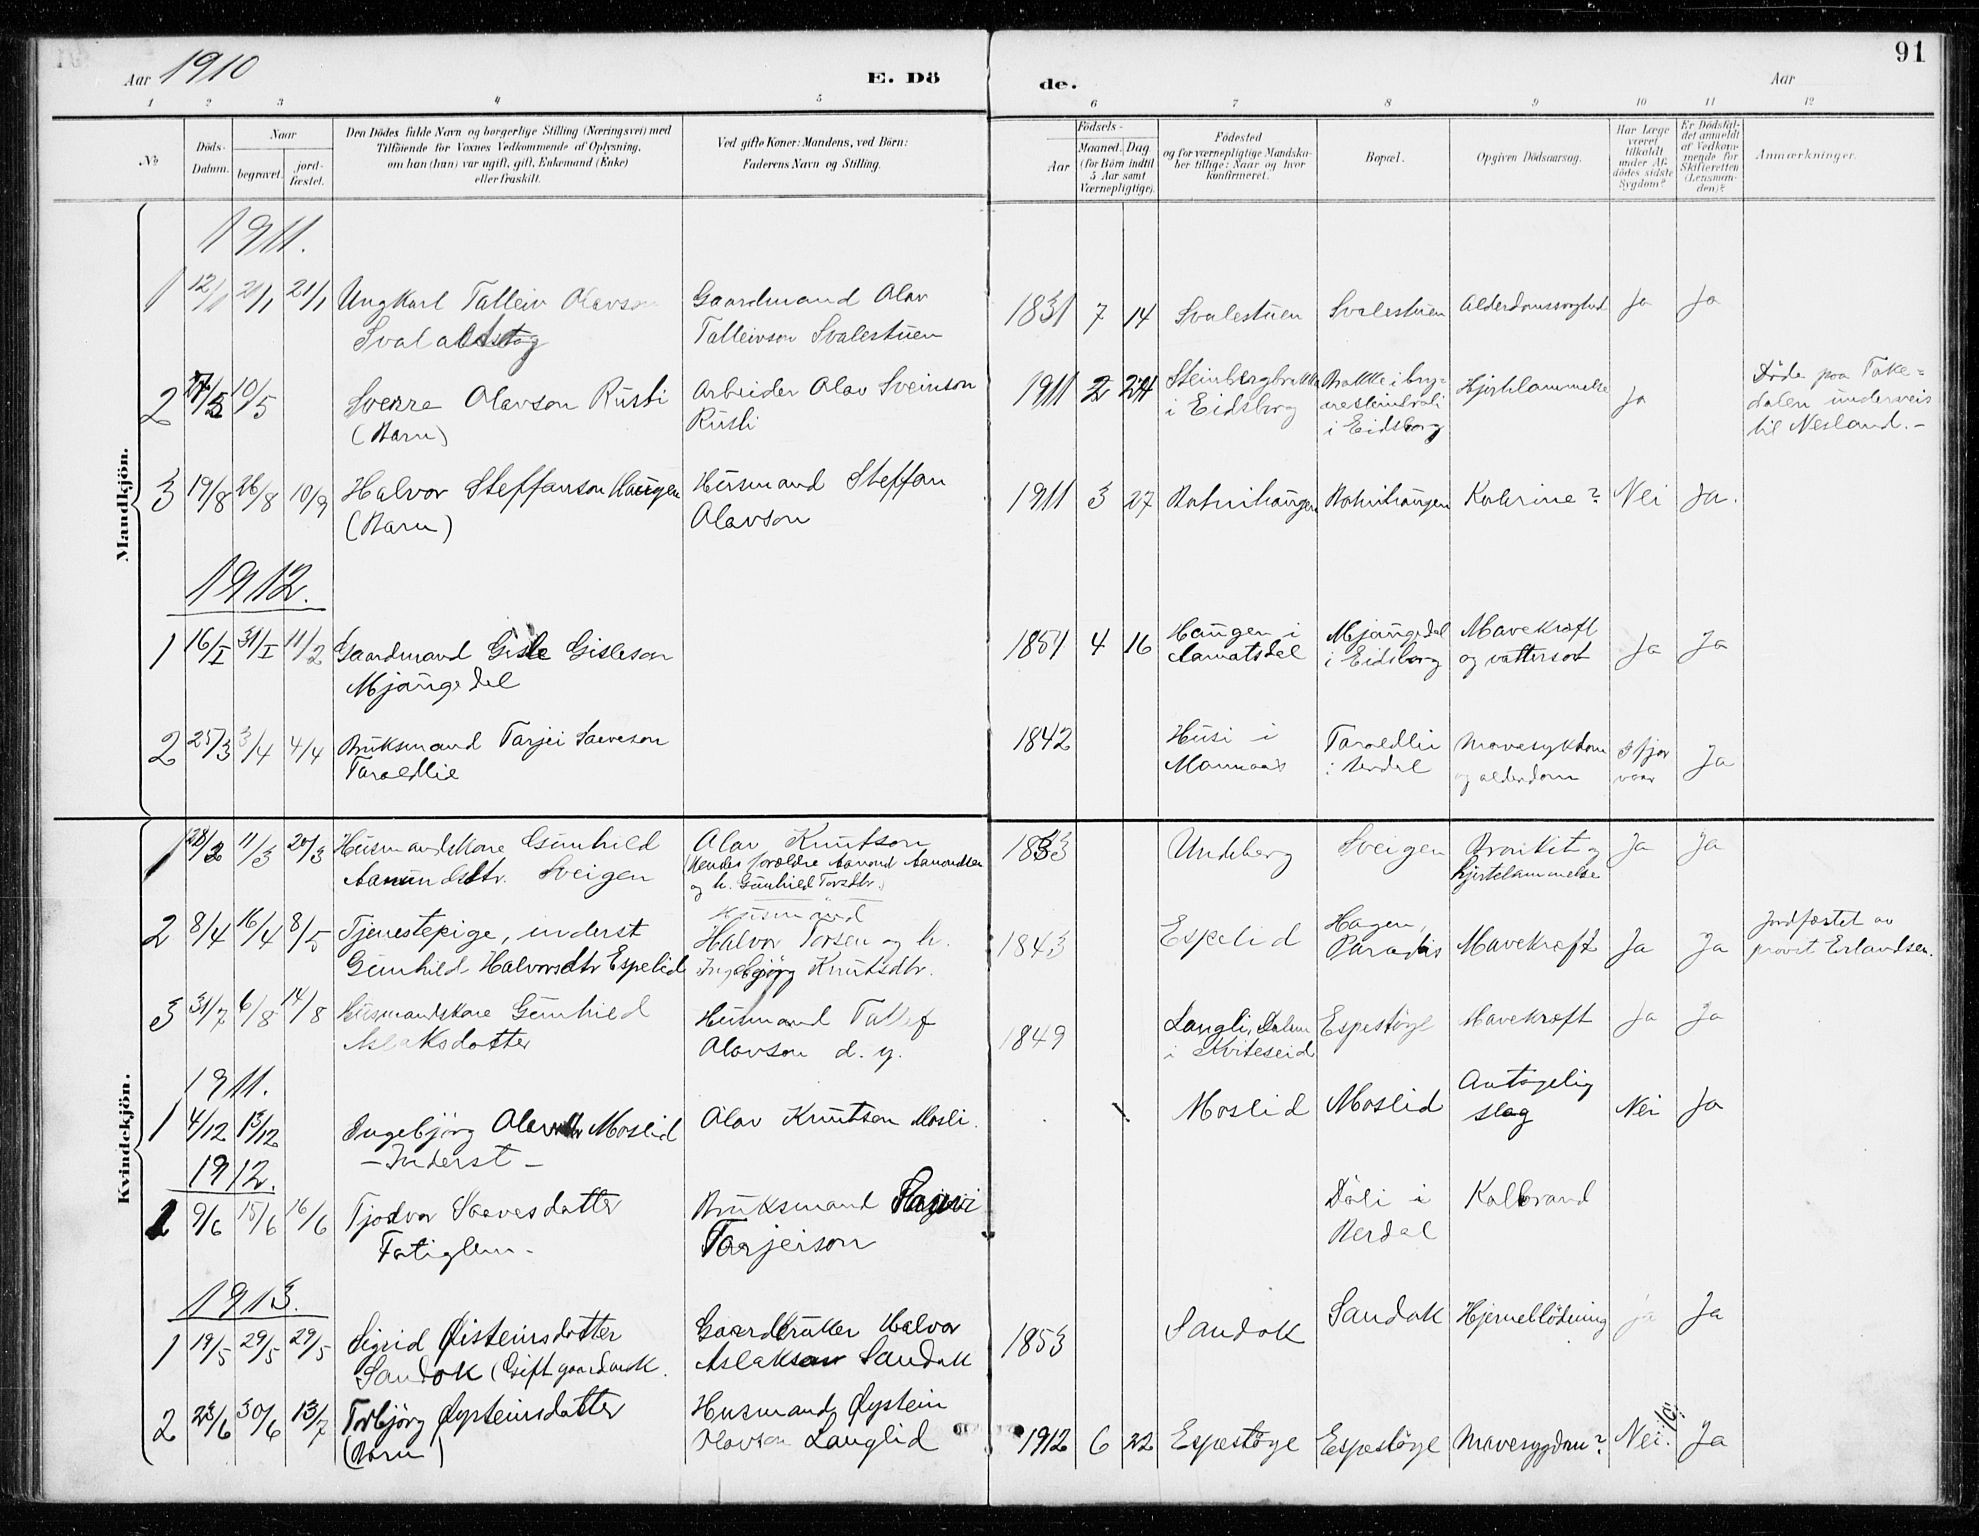 Aar 1910
E. Dö
de.
Aar
91
1 2 3 4 5
6 7 8 9 10 11 12
No
Döds-Datum.
Naar
begravet.
jord-fæstet.
Den Dödes fulde Navn og borgerlige Stilling (Næringsvei) med
Tilföiende for Voxnes Vedkommende af Oplysning,
om han (hun) var ugift, gift, Enkemand (Enke)
eller fraskilt.
Ved gifte Koner: Mandens, ved Börn:
Faderens Navn og Stilling.
Födsels-
Aar
Maaned. Dag
(for Börn indtil
5 Aar samt
Værnepligtige).
Födested
og for værnepligtige Mandska-
ber tillige: Naar og hvor
konfirmeret.
Bopæl.
Opgiven Dödsaarsag.
Har Læge
været
tilkaldt
under Af-
dödes sidste
Sygdom?
Er Dödsfal-
det anmeldt
af Vedkom-
mende for
Skifteretten
(Lensman-
den)?
Anmærkninger.
Mandkjön.
1911.
1 12/1 21/1 21/1 Ungkarl Talleiv Olavson Gaardmand Olav 1831 7 14 Svalestuen Svalestuen Alderdomssvaghed Ja Ja
Talleivson Svalestuen
2 10/5 Sverre Olavson Rusti Arbeider Olav Sveinson 1911 2 24 Hjertelammelse Ja Döde paa Toke=
(Barn) Rusti i Eidsborg i Eidsborg dalen underveis
til Nesland. -
3 19/8 26/8 10/9 Halvor Steffanson Haugen Husmand Steffan 1911 3 27 Kolerine? Nei Ja.
(Barn) Olavson
1912.
1 16/I 31/I 11/2 Gaardmand Gisle Gisleson 1851 4 16 Haugen i Mjaugedal Mavekræft Ja Ja
Mjaugedal i Eidsborg og vattersot
2 25/3 3/4 4/4 Bruksmand Tarjei Saaveson 1842 Husi i Taraldlii Mavesykdom I fjor Ja
Taraldlie og alderdom vaar
Kvindekjön.
1 28/2 11/3 20/3 Husmandskone Gunhild Olav Knutson 1833 Undeberg Sveigen Bronkit og Ja Ja
Aamundsdtr. Sveigen (Hendes forældre Aamond Aamondsen hjertelammelse
og h. Gunhild Torsdtr.)
2 8/4 16/4 8/5 Tjenestepige, inderst Husmand 1843 Espelid Hagen, Mavekræft Ja Ja Jordfæstet av
Gunhild Halvorsdtr Espelid Halvor Torsen og h. Paradis provst Erlandsen.
Ingebjörg Knutsdtr.
3 31/7 6/8 14/8 Husmandskone Gunhild Husmand Tallef 1849 Langli, Dalen Espestöyl Mavekræft Ja Ja
Aslaksdotter Olavson d. y. i Kviteseid
1911.
1 4/12 13/12 Ingebjörg Olavsdtr Moslid Olav Knutson Mosli. Moslid Moslid slag Nei Ja
- Inderst -
1912.
1 9/6 15/6 16/6 Tjodvor Saavesdatter Bruksmand Döli i Kolbrand
Tarjeison
1913.
1 19/5 29/5 29/5 Sigrid Öisteinsdotter Gaardbruker Halvor 1853 Sandok Sandok Hjerneblödning Ja Ja
Sandok (Gift Aslakson Sandok
2 23/6 30/6 13/7 Torbjörg Öysteinsdatter Husmand Öystein 1912 6 22 Espestöyl Espestöyl Mavesygdom? Nei. Ja
(Barn) Olavson Langlid